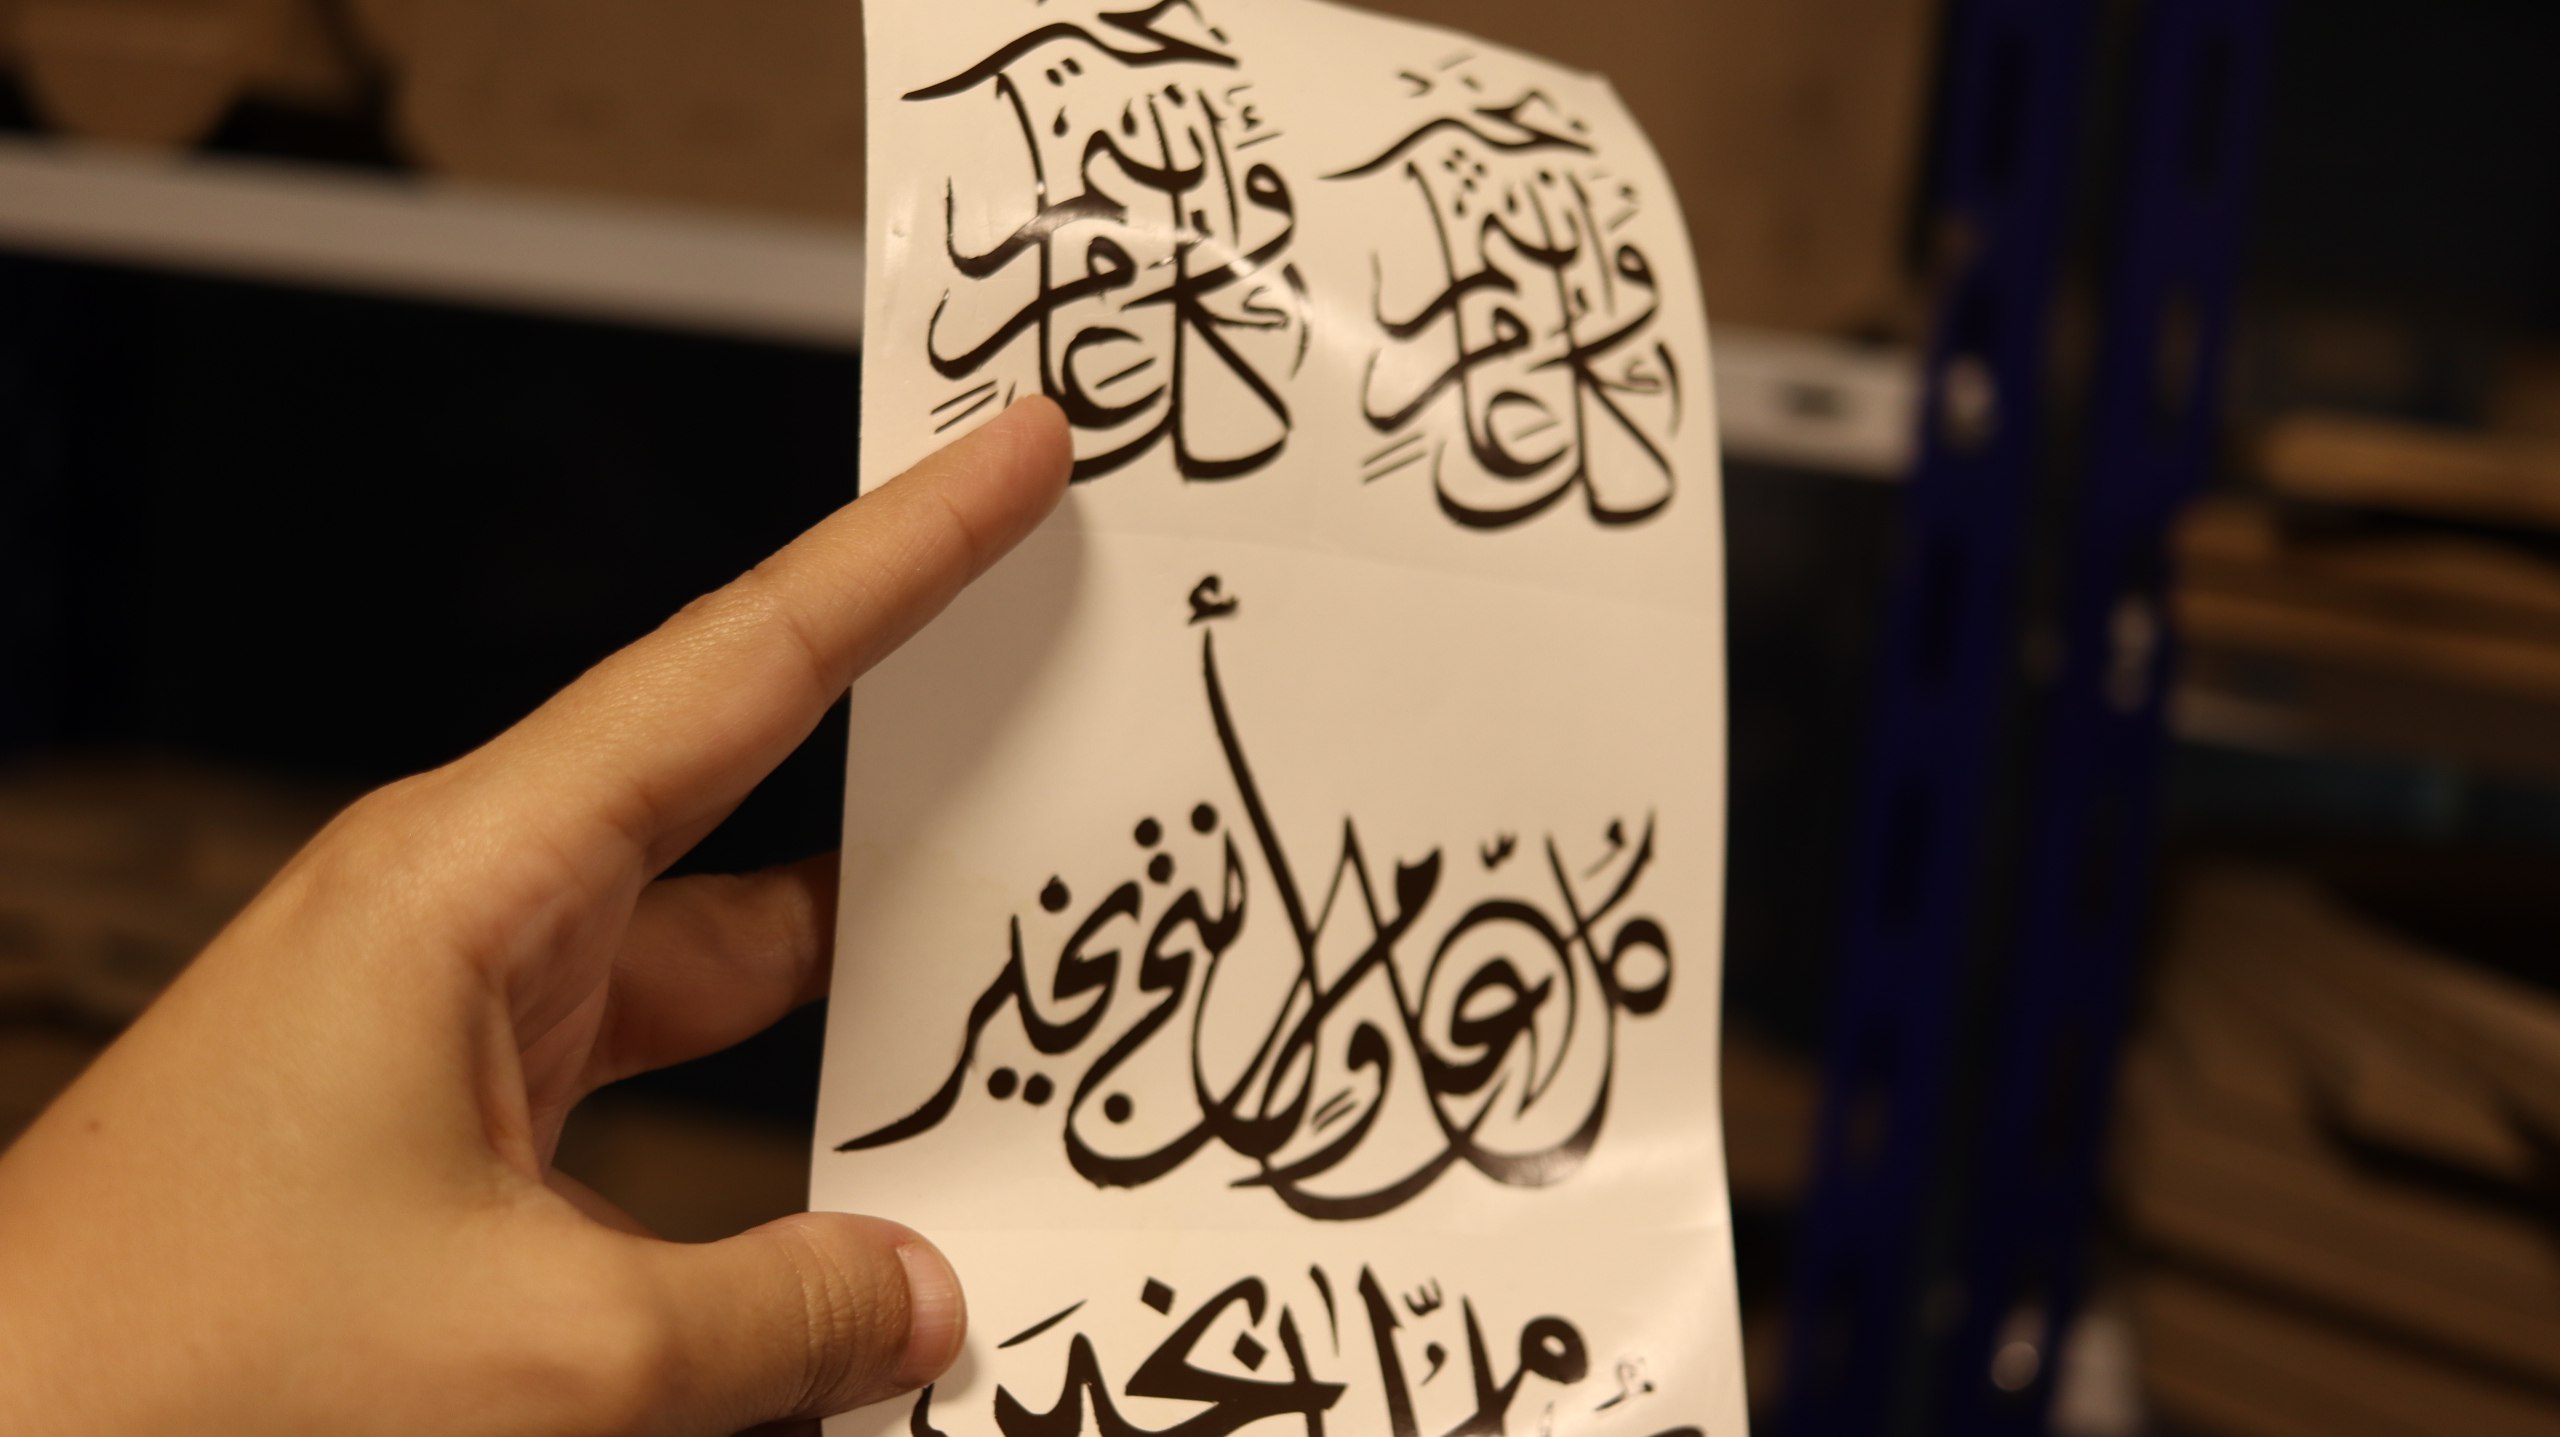 كُلُّ عَامٍ وَأَنْتُمْ بِخَيْرٍ
كُلُّ عَامٍ وَأَنْتُمْ بِخَيْرٍ
كُلّ عامٍ وأنتم بخير